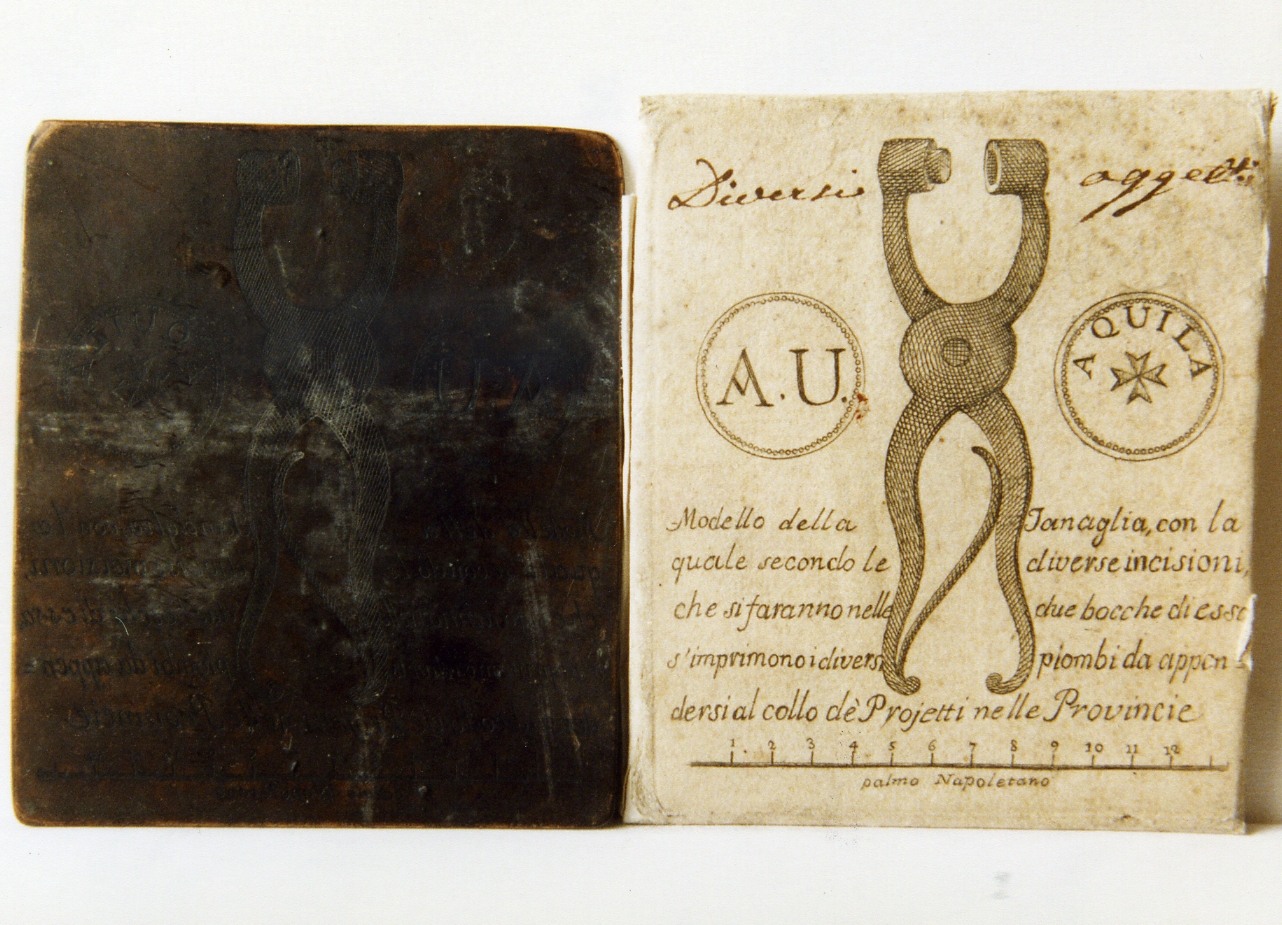 Diversi oggetti
A.U.
AQUILA
Modello della Tanaglia, con la
quale secondo le diverse incisioni,
che si faranno nelle due bocche di esse
s'imprimono i diversi piombi da appen=
dersi al collo dè Projetti nelle Provincie
1 2 3 4 5 6 7 8 9 10 11 12
palmo Napoletano